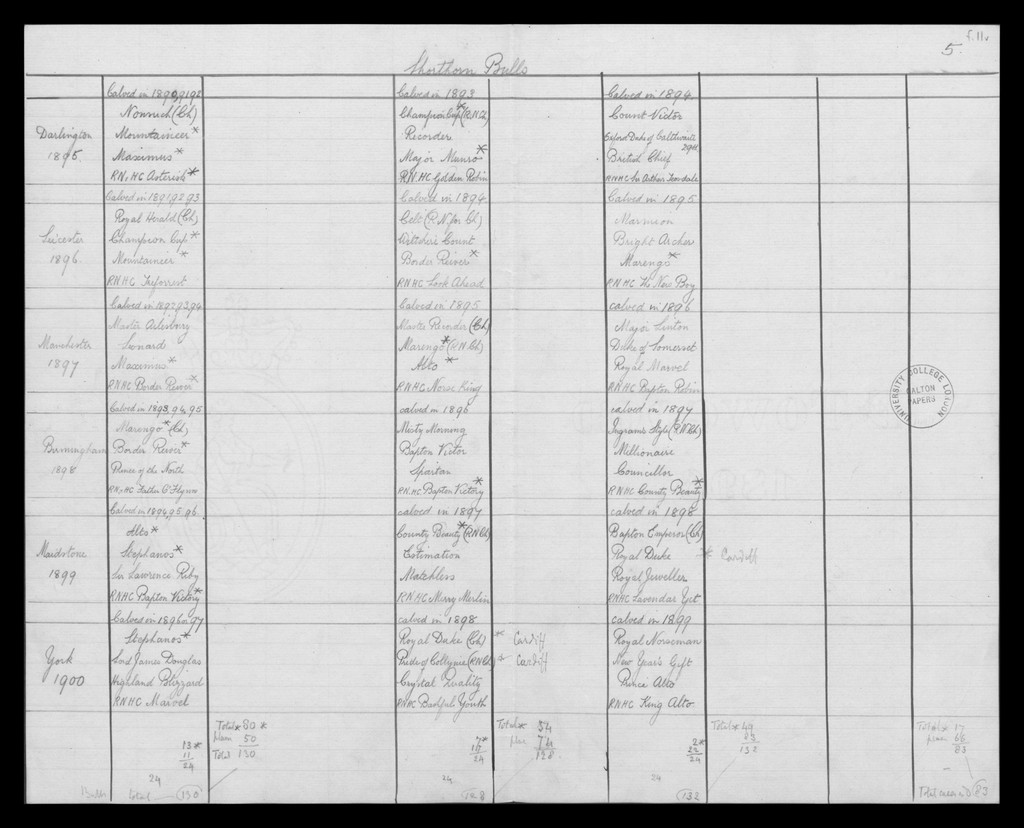 f. 11v
5.
Shorthorn Bulls
Calved in 1890,91,92
Calved in 1893
Calved in 1894
Darlington 1895
Nonsuch (Ch)
Mountaineer*
Maximus*
RN. HC Asterisk*
Champion Cup* (R.N.Ch)
Recorder
Major Munro*
RN. HC Golden Robin
Count Victor
Oxford Duke of Calthwaite 29th
British Chief
RNHC Sir Arthur Irondale
Calved in 1891,92,93
Calved in 1894
Calved in 1895
Leicester 1896.
Royal Herald (Ch)
Champion Cup*
Mountaineer*
RNHC Treforrest
Celt (R.N. for Ch)
Wiltshire Count
Border Riever*
RNHC Look Ahead
Marmion
Bright Archer
Marengo*
RNHC The New Boy
Calved in 1892,93,94
Calved in 1895
calved in 1896
Manchester 1897
Master Arlesbury
Leonard
Maximus*
RNHC Border Riever*
Master Recorder (Ch)
Marengo* (R.N.Ch)
Alto*
RNHC Norse King
Major Linton
Duke of Somerset
Royal Marvel
RNHC Bapton Robin
Calved in 1893,94,95
calved in 1896
calved in 1897
Birmingham 1898
Marengo* (Ch)
Border Riever*
Prince of the North
RN. HC Father O'Flynn
Misty Morning
Bapton Victor
Spartan
RN. HC Bapton Victory*
Ingram's Style (R.N.Ch)
Millionaire
Councillor
RNHC County Beauty*
Calved in 1894,95,96.
calved in 1897
calved in 1898
Maidstone 1899
Alto*
Stephanos*
Sir Lawrence Riby
RNHC Bapton Victory*
County Beauty* (RNCh)
Estimation
Matchless
RNHC Merry Merlin
Bapton Emperor (Ch)
Royal Duke * Cardiff
Royal Jeweller
RNHC Lavendar Yet
Calved in 1896 or 97
calved in 1898
calved in 1899
York 1900
Stephanos*
Lord James Douglas
Highland Blizzard
RNHC Marvel
Royal Duke (Ch) * Cardiff
Pride of Collynie (RNCh) * Cardiff
Crystal Quality
RNHC Bashful Youth
Royal Norseman
New Year's Gift
Prince Alto
RNHC King Alto
13*
11
24
Total* 80*
50
Total 130
7*
17
24
Total* 54
74
128
2*
22
24
Total* 49
83
132
Total* 17
66
83
24
24
24
Bulls total 130
128
132
83
UNIVERSITY COLLEGE LONDON
GALTON PAPERS